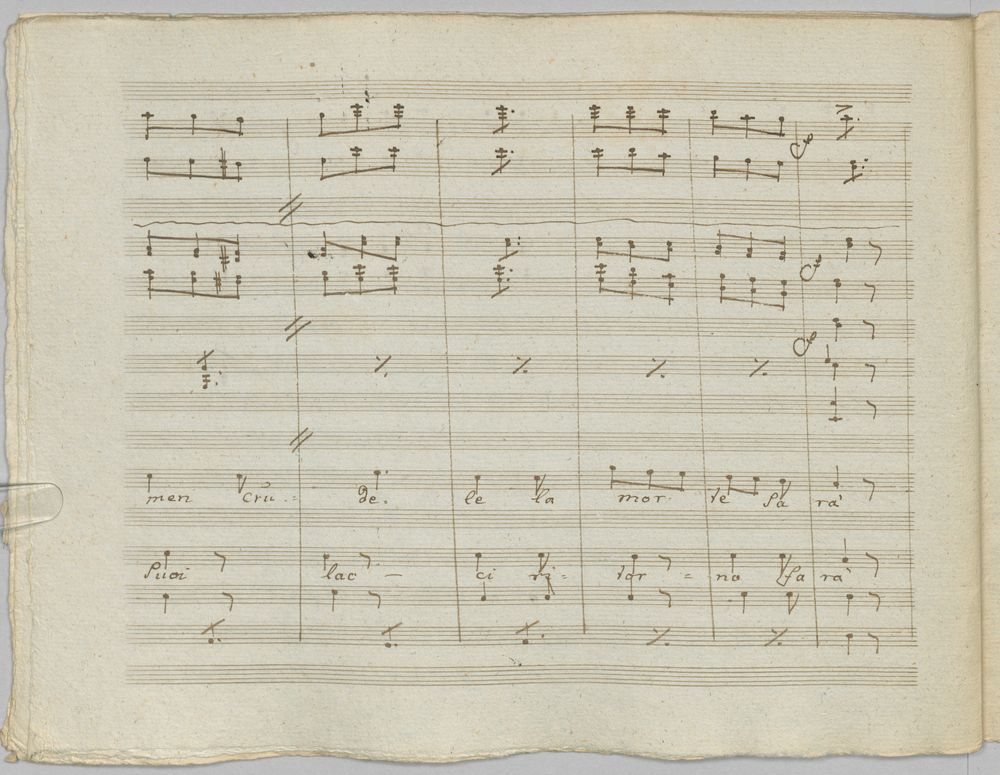 men cru = de. le la mor te sa rà
suoi lac - ci ri = tor = no fa rà